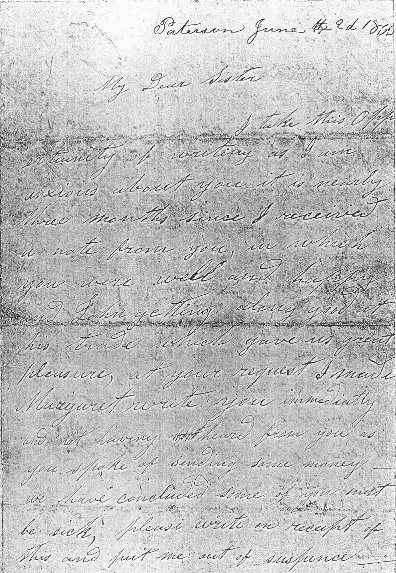 Paterson June 2d 186
My Dear Sister
I take this Opp
ortunity of writing as I am
anxious about you it is nearly
three months since I received
a note from you, in which
you were well and happy
and John getting along good at
his trade which gave us great
pleasure, at your request I made
Margaret write you immediatly
and not having heard from you as
you spoke of sending some money —
we have concluded some of you must
be sick, please write on receipt of
this and put me out of suspence —